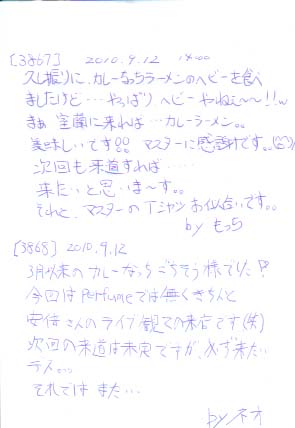 [3867] 2010.9.12 14:00
久し振りに、カレーなっちラーメンのヘビーを食べ
ましたけど…やっぱり、ヘビーやねぇ〜!!w
まぁ 室蘭に来れば…カレーラーメン。。
美味しいです!! マスターに感謝です。
次回も来道すれば……
来たいと思いま〜す。。
それと、マスターのTシャツお似合いです。。
by もっち
[3868] 2010.9.12
3月以来のカレーなっち ごちそう様でした!
今回はPerfumeでは無くきちんと
安倍さんのライブ観ての来店です(笑)
次回の来道は未定ですが、必ず来た…
デス。。。
それでは また…
by ネオ